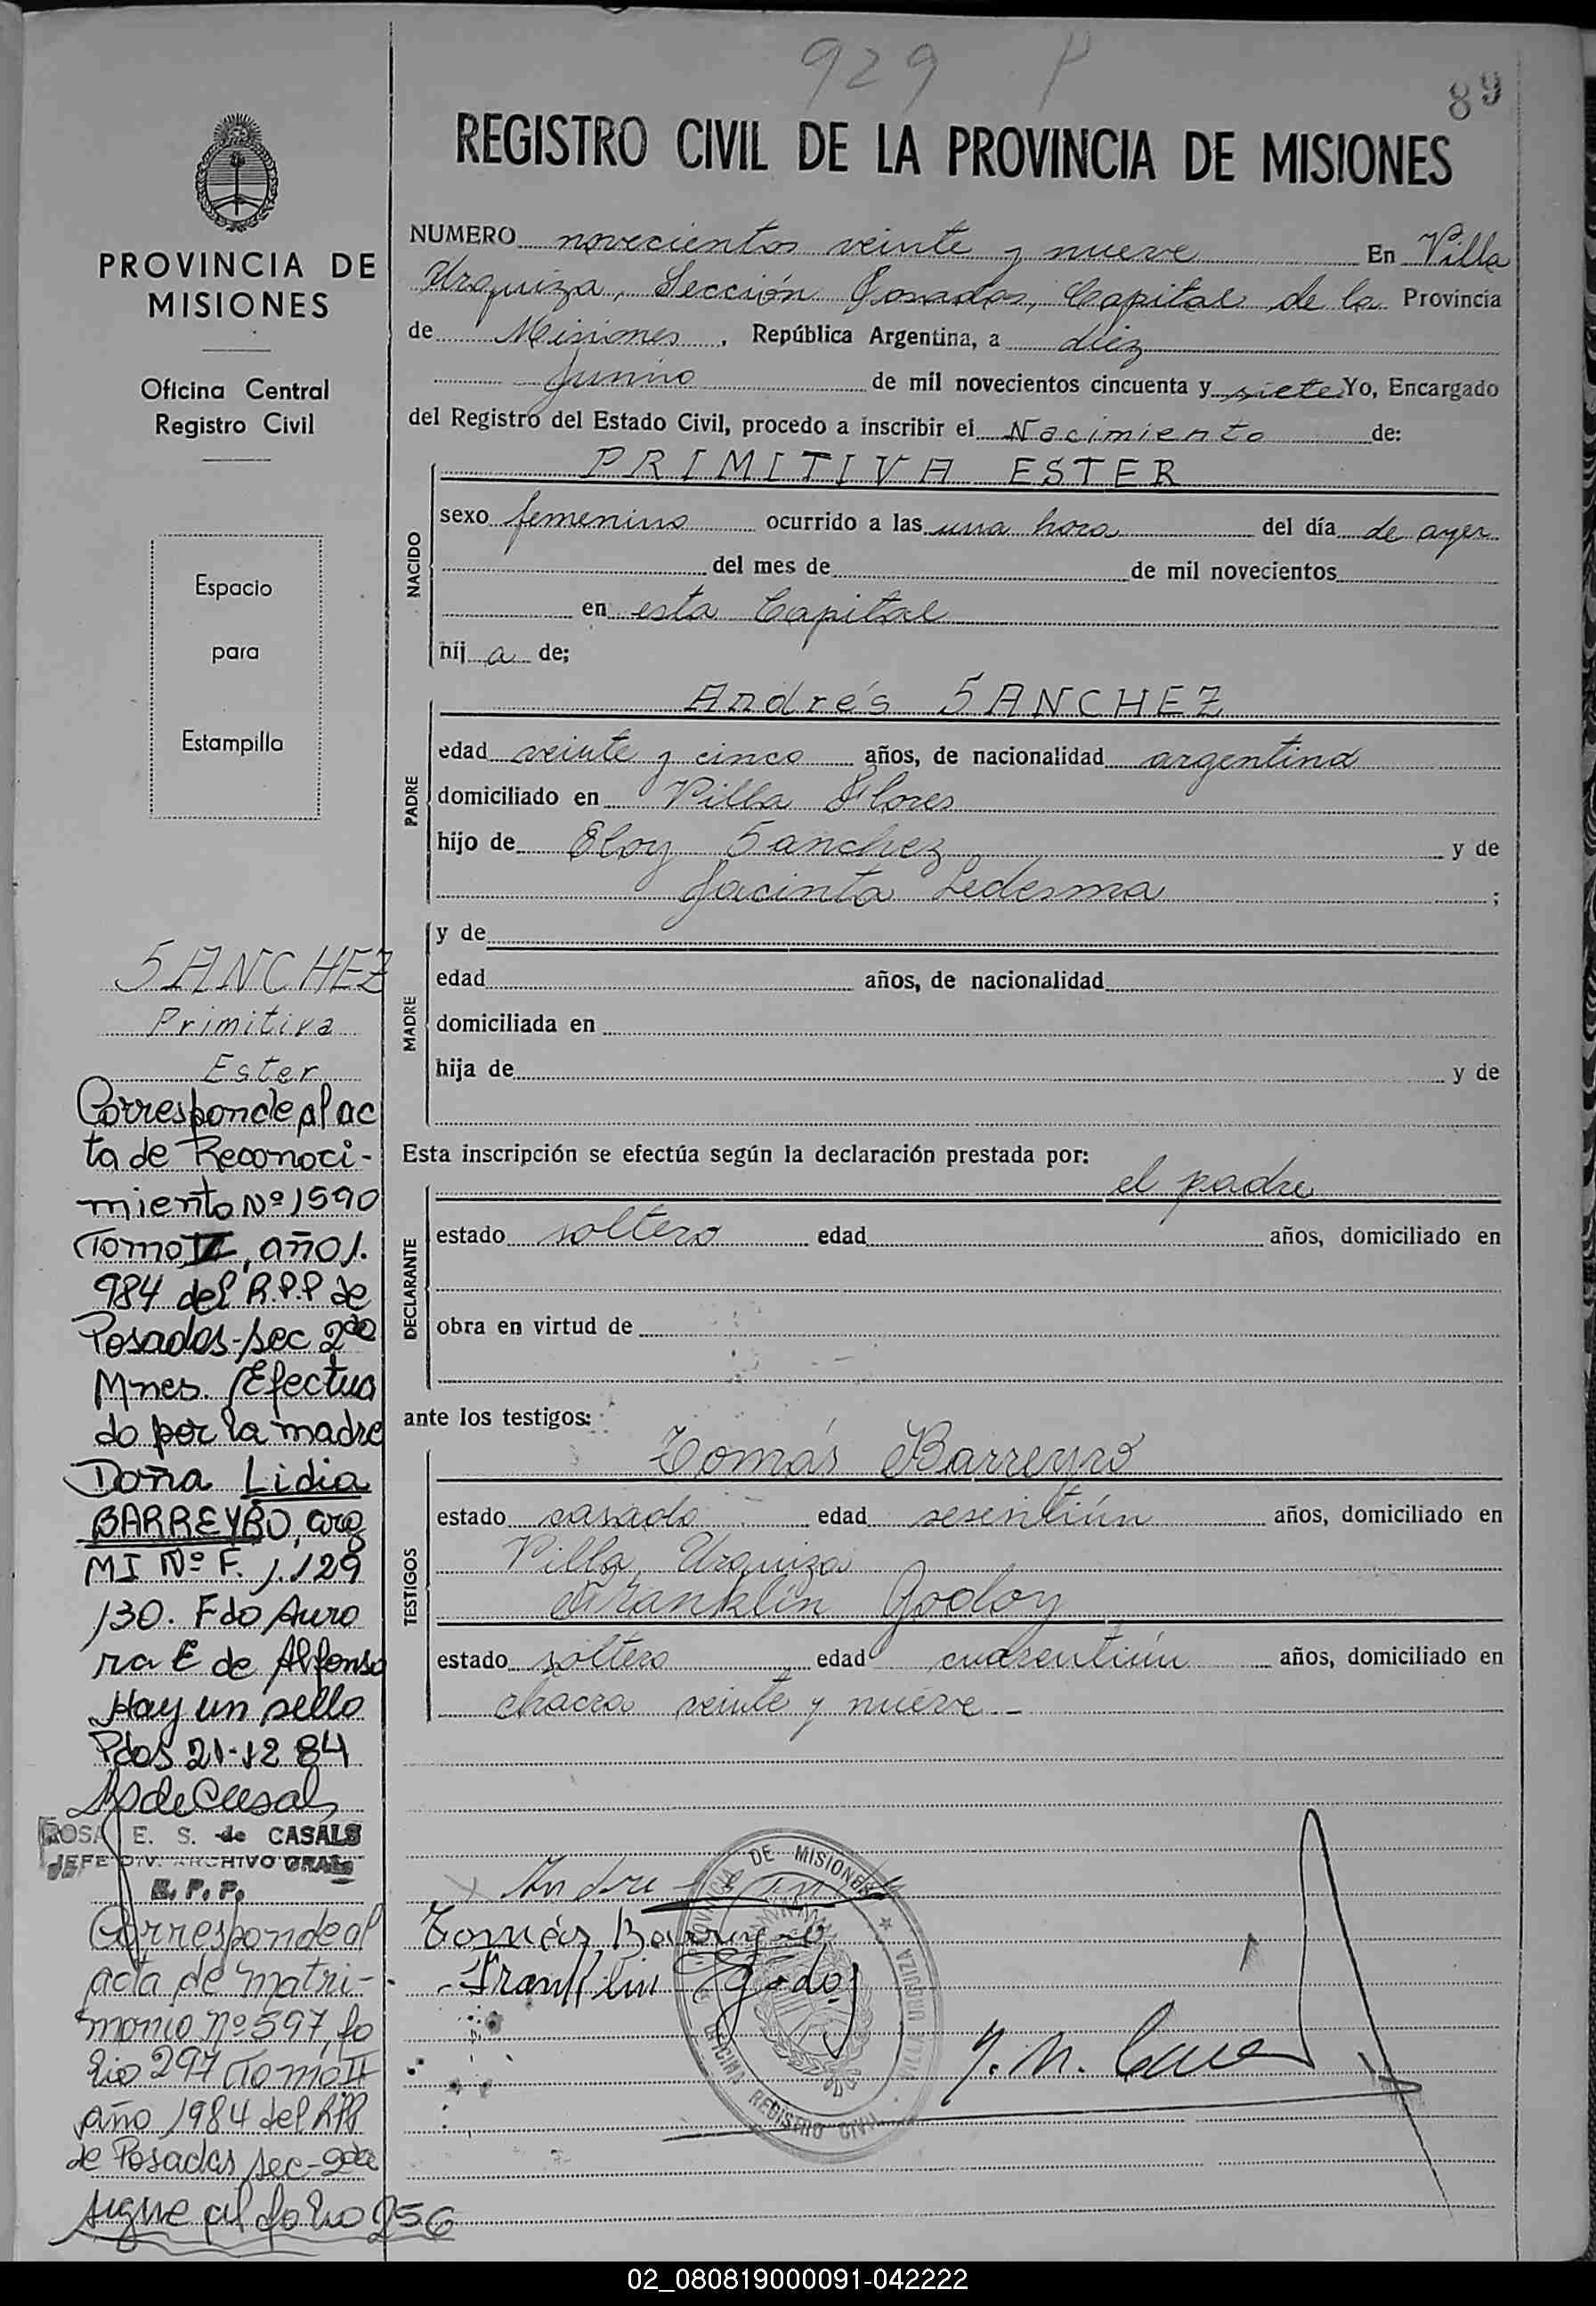 929 P
89
REGISTRO CIVIL DE LA PROVINCIA DE MISIONES
PROVINCIA DE
MISIONES
Oficina Central
Registro Civil
Espacio
para
Estampilla
NUMERO novecientos veinte y nueve En Villa
Urquiza, Sección Posadas, Capital de la Provincia
de Misiones, República Argentina, a diez
junio de mil novecientos cincuenta y siete Yo, Encargado
del Registro del Estado Civil, procedo a inscribir el Nacimiento de:
NACIDO
PRIMITIVA ESTER
sexo femenino ocurrido a las una hora del día de ayer
del mes de de mil novecientos
en esta Capital
hij a de;
PADRE
Andrés SANCHEZ
edad veinte y cinco años, de nacionalidad argentina
domiciliado en Villa Flores
hijo de Eloy Sanchez y de
Jacinta Ledesma ;
MADRE
y de
edad años, de nacionalidad
domiciliada en
hija de y de
Esta inscripción se efectúa según la declaración prestada por:
DECLARANTE
el padre
estado soltero edad años, domiciliado en
obra en virtud de
ante los testigos:
TESTIGOS
Tomás Barreyro
estado casado edad sesentiún años, domiciliado en
Villa Urquiza
Franklin Godoy
estado soltero edad cuarentiún años, domiciliado en
chacra veinte y nueve
SANCHEZ
Primitiva
Ester
Corresponde al ac
ta de Reconoci-
miento Nº 1590
Tomo II, año 1.
984 del R.P.P de
Posadas-sec 2da
Mnes. Efectua
do por la madre
Doña Lidia
BARREYRO, arg
MI Nº F. 1.129
130. Fdo Auro
ra E de Alfonso
Hay un sello
Pdas 21-12 84
ROSA E. S. de CASALS
JEFE DIV. ARCHIVO GRAL
R. P. P.
Corresponde al
acta de matri-
monio nº 597, fo
lio 297 Tomo II
año 1984 del RPP
de Posadas sec-2da
sigue al folio 256
Tomás Barreyro
Franklin Godoy
PROVINCIA DE MISIONES
VILLA URQUIZA
OFICINA REGISTRO CIVIL
02_080819000091-042222